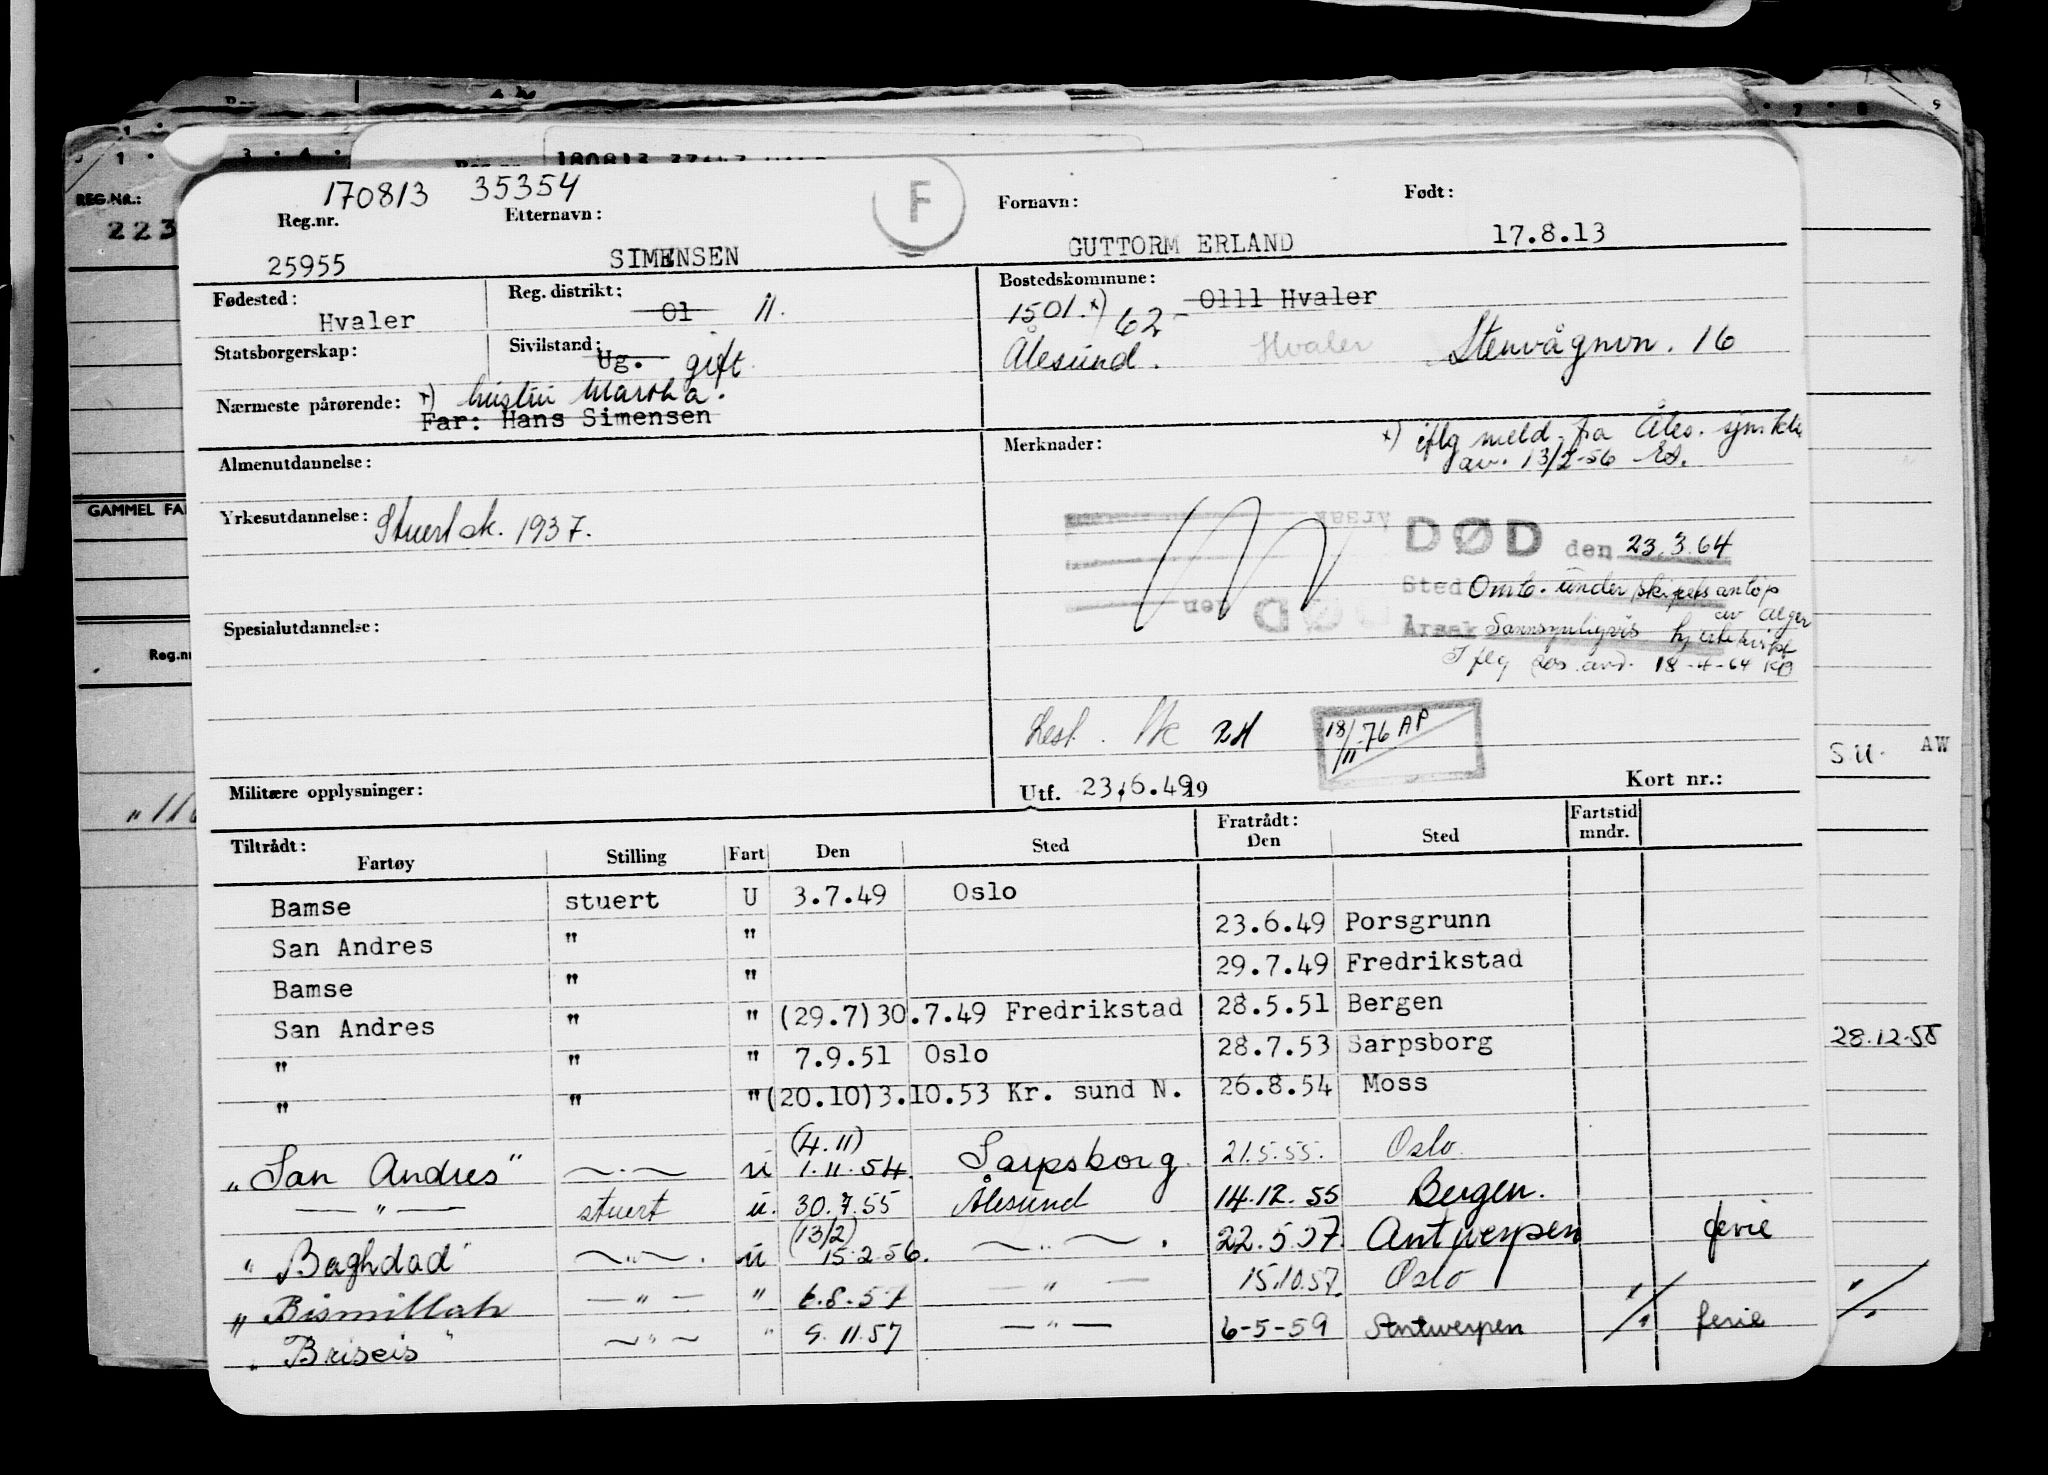 180813
REG.NR.:
223
170813 35354
F
Reg.nr. Etternavn: Fornavn: Født:
25955 SIMENSEN GUTTORM ERLAND 17.8.13
Fødested: Reg. distrikt: Bostedskommune:
Hvaler 01 11. 1501. x) 62- 0111 Hvaler
Statsborgerskap: Sivilstand: Ålesund. Hvaler Stenvågnvn. 16
Ug. gift
Nærmeste pårørende: x) hustru Martha.
Far: Hans Simensen
Almenutdannelse: Merknader: x) iflg meld. fra Åles. sjm.ktr.
av. 13/2-56
GAMMEL FA
Yrkesutdannelse: Stuertsk. 1937.
DØD den 23.3.64
Sted Omb. under skipets anløp
av Alger
Spesialutdannelse: Årsak Sannsynligvis hjertelidelse
Iflg 18-4-64 KØ
Reg.nr
18/11-76 AP
S.U. AW
Militære opplysninger: Utf. 23.6.49 19 Kort nr.:
Tiltrådt: Fratrådt: Fartstid
Fartøy Stilling Fart Den Sted Den Sted mndr.
Bamse stuert U 3.7.49 Oslo
San Andres " " 23.6.49 Porsgrunn
Bamse " " 29.7.49 Fredrikstad
San Andres " " (29.7)30.7.49 Fredrikstad 28.5.51 Bergen
" " " 7.9.51 Oslo 28.7.53 Sarpsborg
28.12.58
" " " (20.10)3.10.53 Kr. sund N. 26.8.54 Moss
(4.11)
"San Andres" —"— u 1.11.54 Sarpsborg 21.5.55. Oslo
—"— stuert u. 30.7.55 Ålesund 14.12.55 Bergen.
(13/2)
"Baghdad" —"— u 15.2.56. —"— 22.5.57 Antwerpen ferie
"Bismillah —"— " 6.8.57 —"— 15.10.57. Oslo
"Briseis" —"— " 9.11.57 —"— 6-5-59 Antwerpen ferie